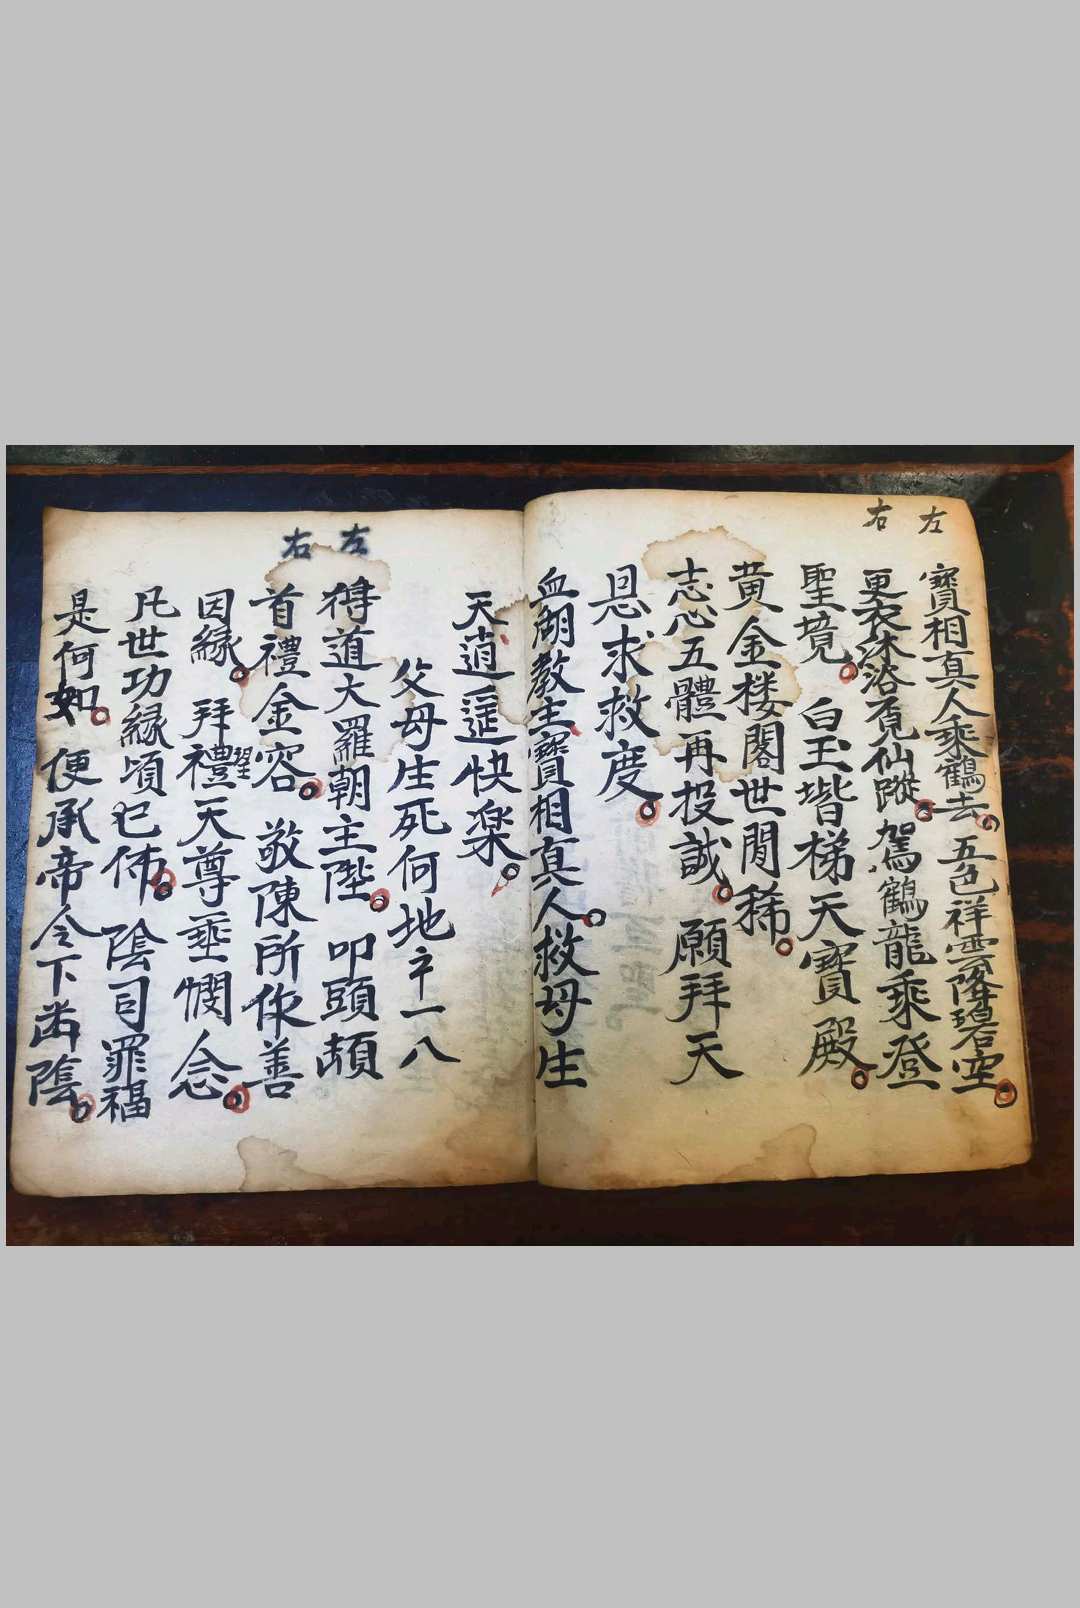 左
右
寶相真人乘鶴去。五色祥雲降碧空。
更衣沐浴覓仙蹤。駕鶴龍乘登
聖境。白玉堦梯天寶殿。
黄金楼閣世間稀。
志心五體再投誠。願拜天
恩求救度。
血湖教主寶相真人。救母生
天逍遥快楽。
父母生死何地 一八
左
右
得道大羅朝主陛。叩頭頓
首禮金容。敬陳所作善
因縁。拜禮聖天尊垂憫念。
凡世功縁頃已佈。陰司罪福
是何如。便承帝令下幽陰。